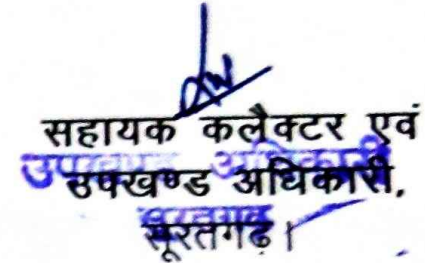 सहायक कलैक्टर एवं
उपखण्ड अधिकारी,
सूरतगढ।